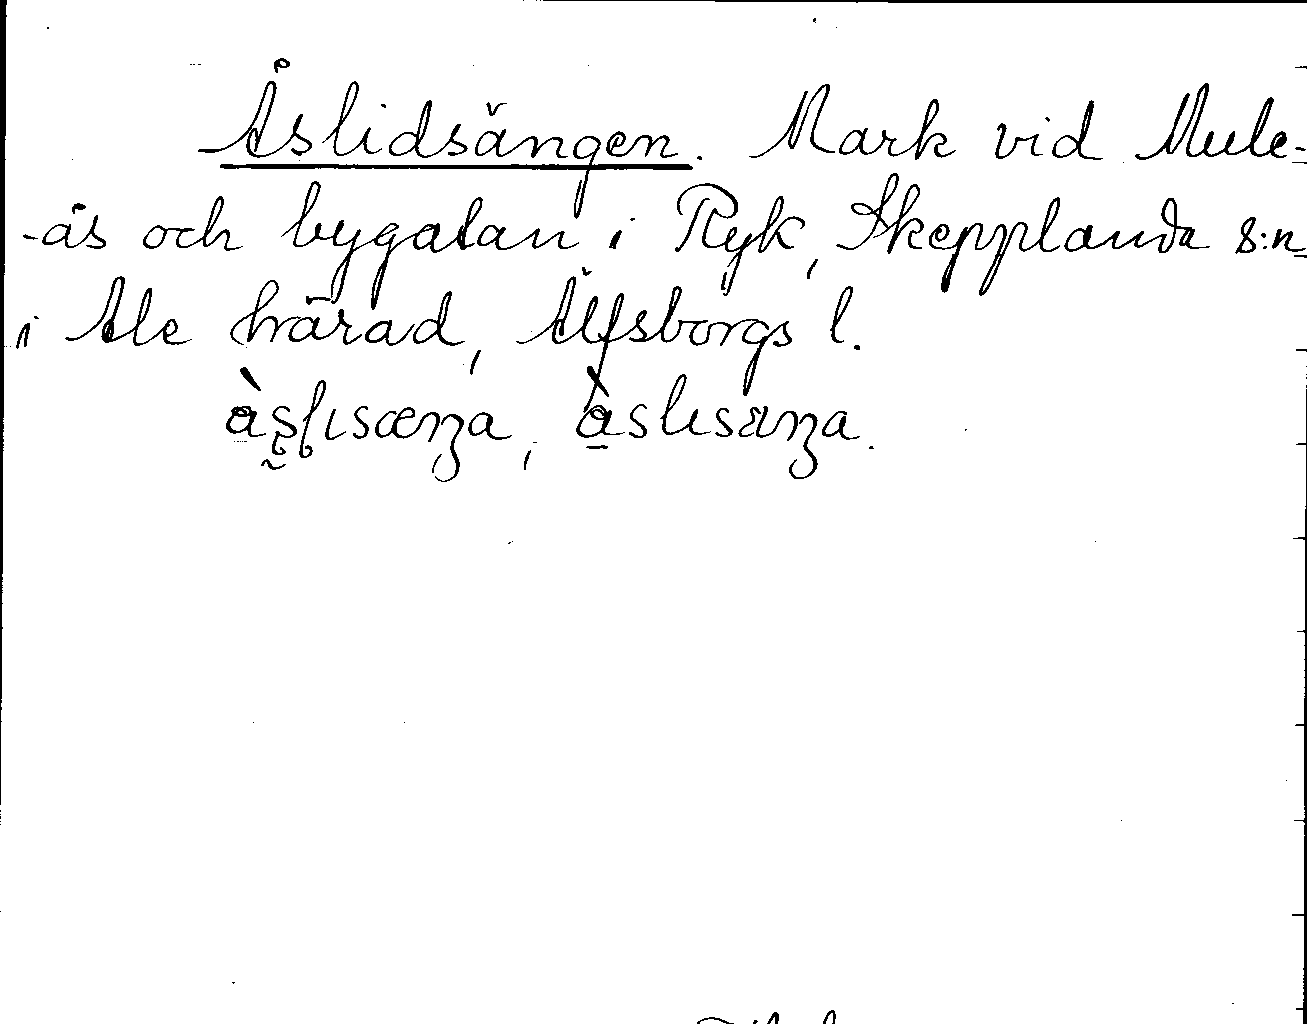 Åslidsängen. Mark vid Mule-
-ås och bygatan i Ryk, Skepplanda s:n
i Ale härad, Älfsborgs l.